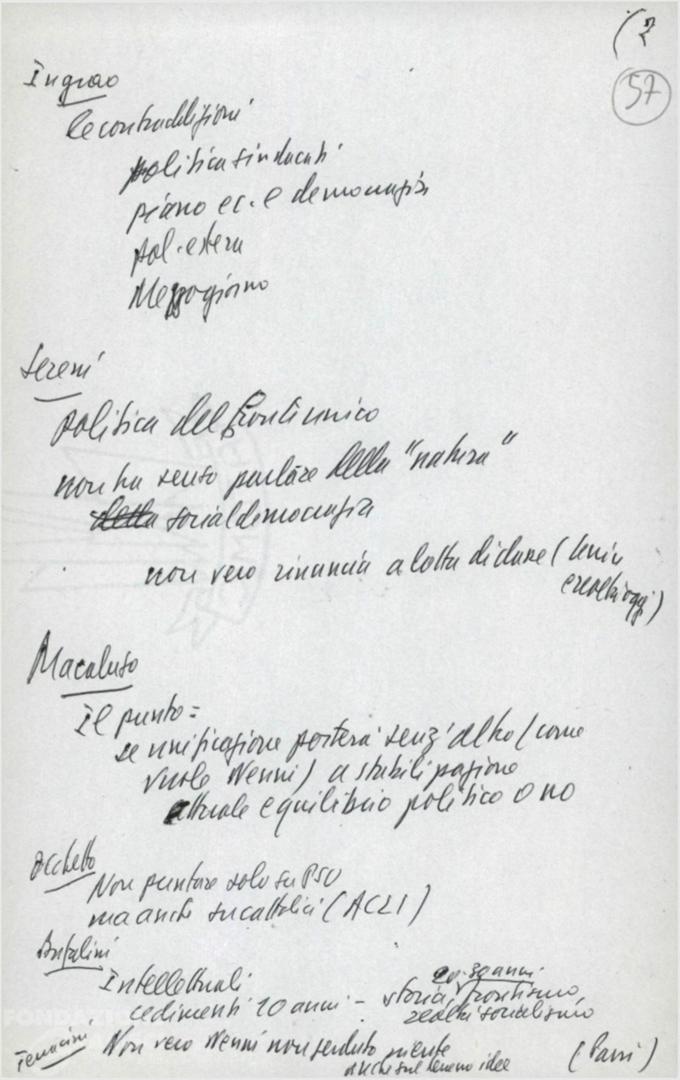 57
Ingrao
le contraddizioni
politica sindacati
piano ec. e democrazia
pol. estera
Mezzogiorno
Sereni
politica del fronte unico
non ha senso parlare della "natura"
della socialdemocrazia
non vero rinuncia a lotta di classe (Lenin
Macaluso
Il punto =
se unificazione porterà senz'altro (come
vuole Nenni) a stabilizzazione
attuale equilibrio politico o no
Occhetto
Non puntare solo su PSU
ma anche su cattolici (ACLI)
Bufalini
Intellettuali
cedimenti 20 anni - storia frontismo
30 anni
socialismo
Terracini
Non vero Nenni non perduto niente
anche sul terreno idee
(Parri)
FONDAZIO